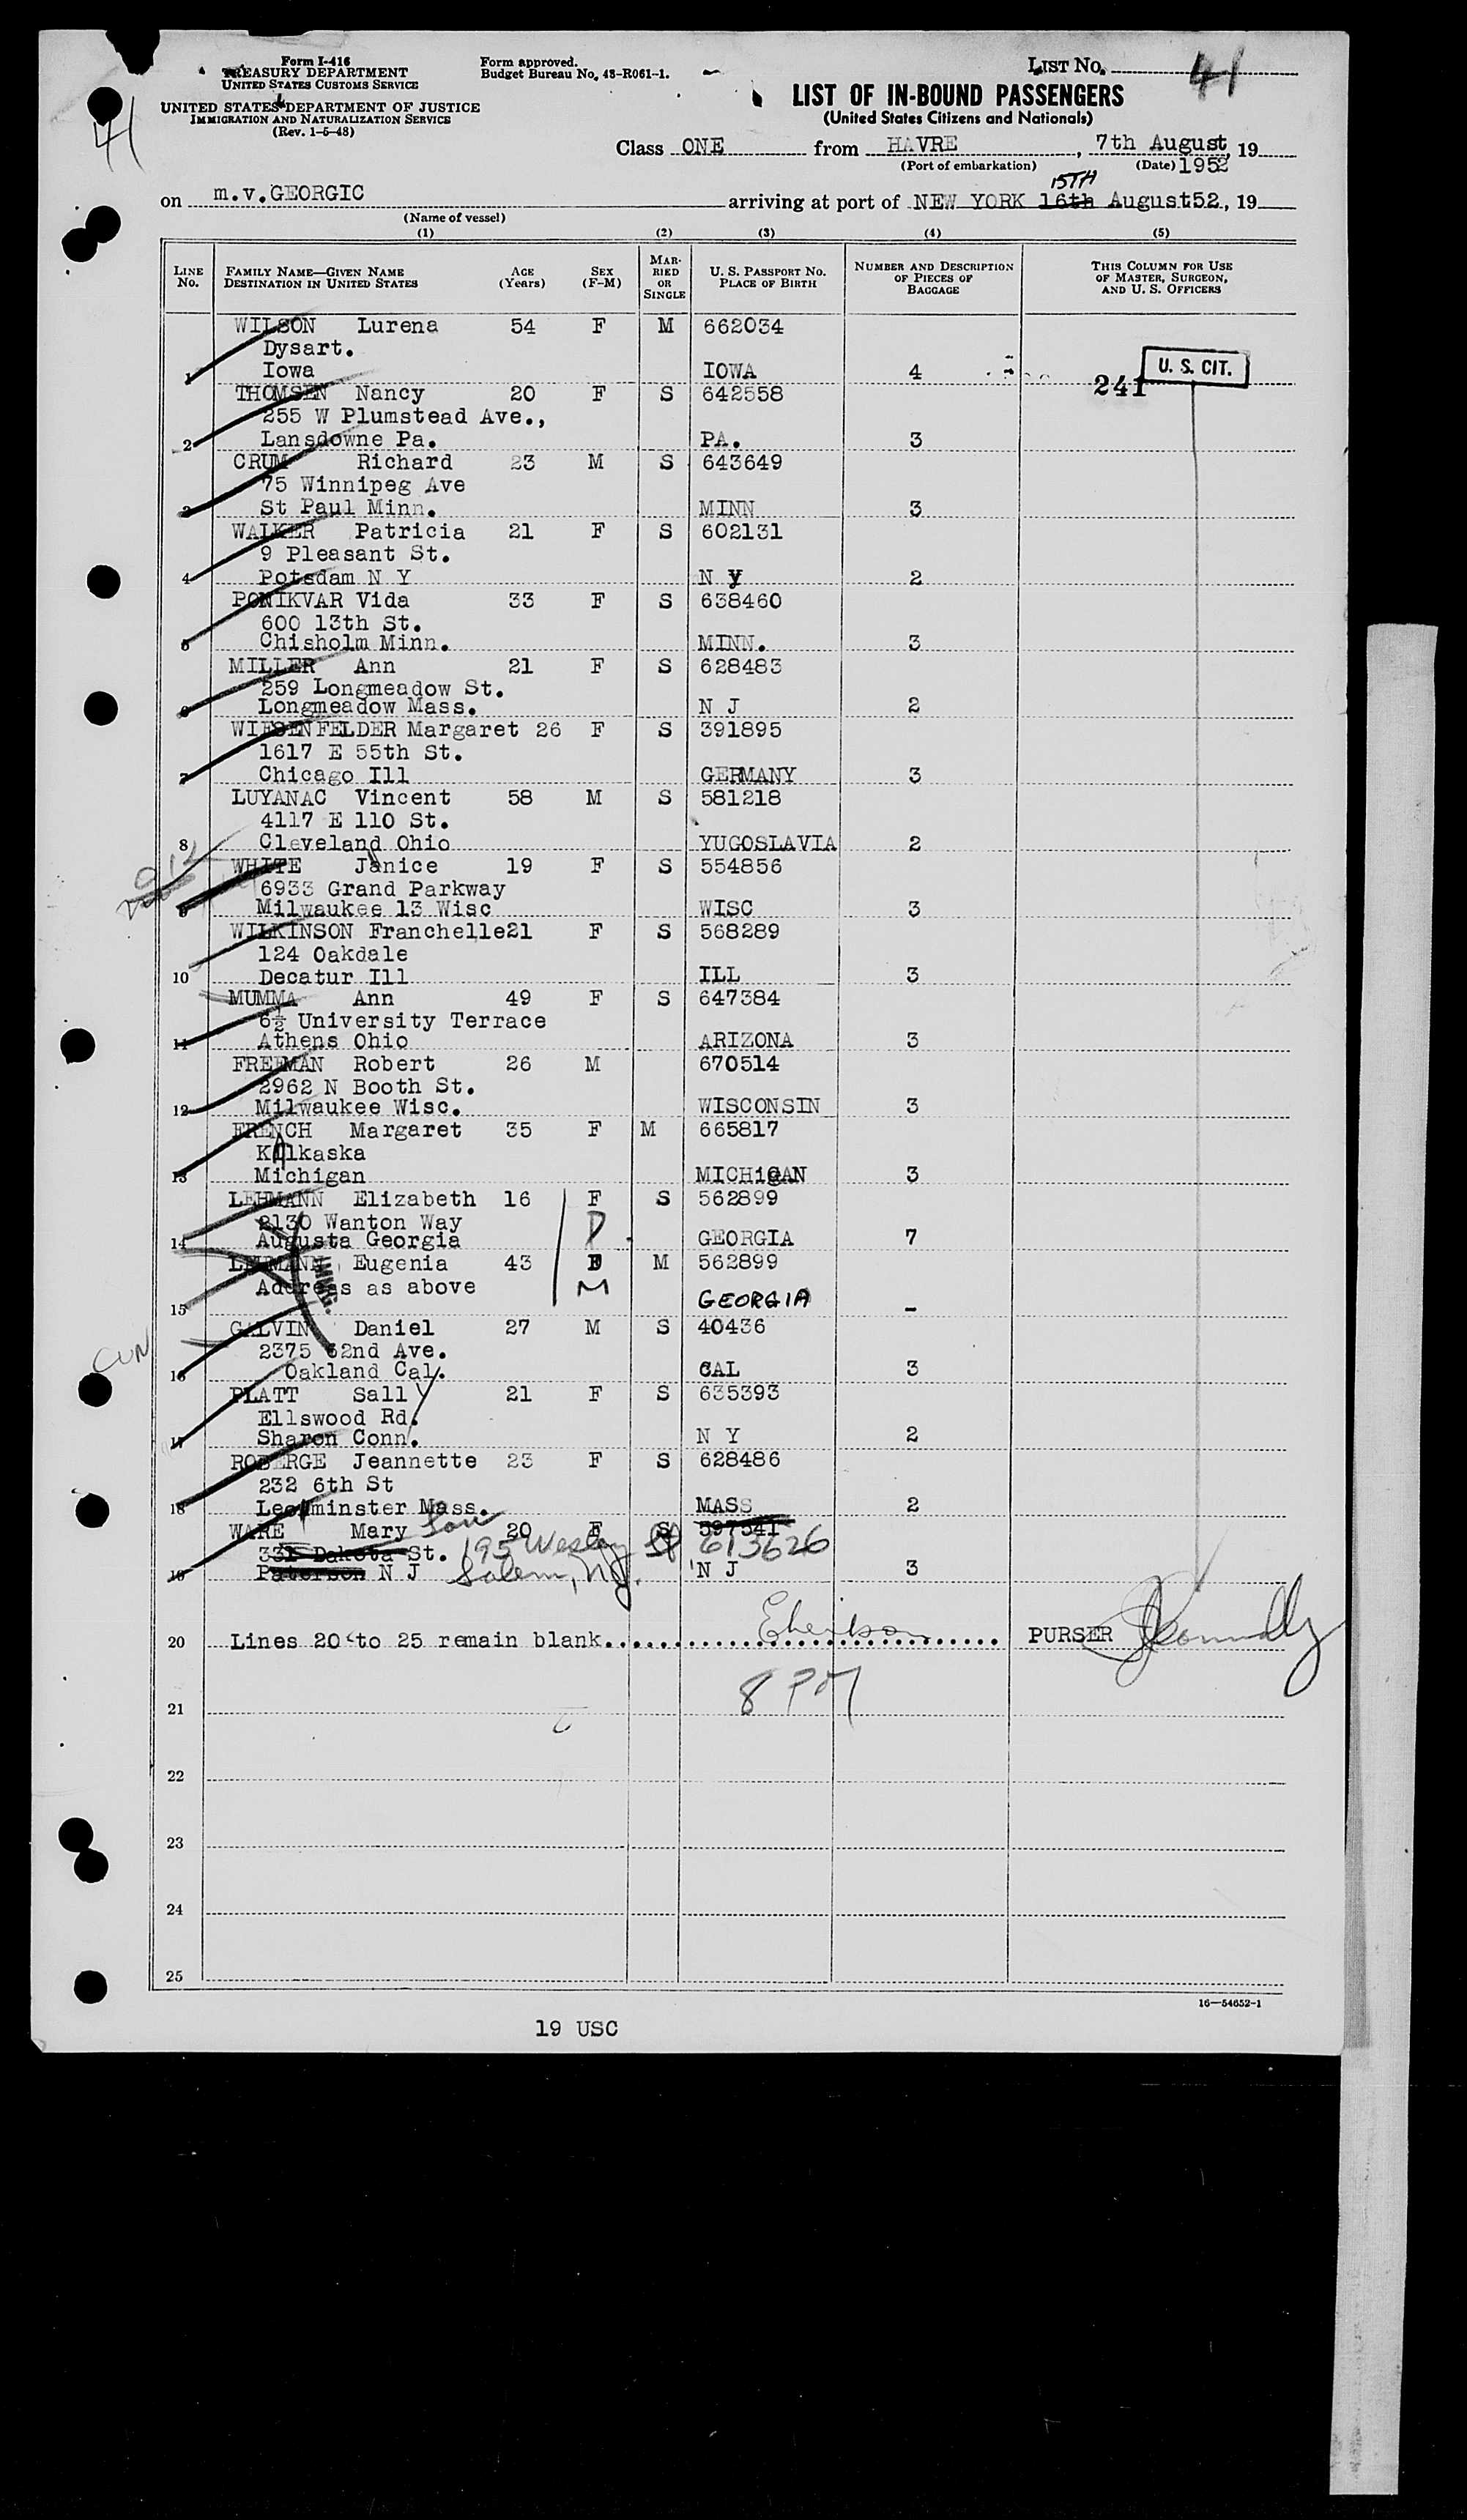 Form I-416
TREASURY DEPARTMENT
UNITED STATES CUSTOMS SERVICE
UNITED STATES DEPARTMENT OF JUSTICE
IMMIGRATION AND NATURALIZATION SERVICE
(Rev. 1-5-48)
Form approved.
Budget Bureau No. 43-R061-1.
LIST No. 41
41
LIST OF IN-BOUND PASSENGERS
(United States Citizens and Nationals)
Class ONE from HAVRE, 7th August, 19
(Port of embarkation) (Date) 1952
15TH
on m.v.GEORGIC arriving at port of NEW YORK 16th August52, 19
(Name of vessel)
(1) (2) (3) (4) (5)
LINE No. FAMILY NAME—GIVEN NAME DESTINATION IN UNITED STATES AGE (Years) SEX (F-M) MARRIED OR SINGLE U. S. PASSPORT No. PLACE OF BIRTH NUMBER AND DESCRIPTION OF PIECES OF BAGGAGE THIS COLUMN FOR USE OF MASTER, SURGEON, AND U. S. OFFICERS
WILSON Lurena 54 F M 662034
Dysart.
1 Iowa IOWA 4 241 U. S. CIT.
THOMSEN Nancy 20 F S 642558
255 W Plumstead Ave.,
2 Lansdowne Pa. PA. 3
CRUM Richard 23 M S 643649
75 Winnipeg Ave
3 St Paul Minn. MINN 3
WALKER Patricia 21 F S 602131
9 Pleasant St.
4 Potsdam N Y N Y 2
PONIKVAR Vida 33 F S 638460
600 13th St.
5 Chisholm Minn. MINN. 3
MILLER Ann 21 F S 628483
259 Longmeadow St.
6 Longmeadow Mass. N J 2
WIESENFELDER Margaret 26 F S 391895
1617 E 55th St.
7 Chicago Ill GERMANY 3
LUYANAC Vincent 58 M S 581218
4117 E 110 St.
8 Cleveland Ohio YUGOSLAVIA 2
WHITE Janice 19 F S 554856
6933 Grand Parkway
9 Milwaukee 13 Wisc WISC 3
WILKINSON Franchelle21 F S 568289
124 Oakdale
10 Decatur Ill ILL 3
MUMMA Ann 49 F S 647384
6½ University Terrace
11 Athens Ohio ARIZONA 3
FREEMAN Robert 26 M 670514
2962 N Booth St.
12 Milwaukee Wisc. WISCONSIN 3
FRENCH Margaret 35 F M 665817
KAlkaska
13 Michigan MICHiGAN 3
LEHMANN Elizabeth 16 F S 562899
2130 Wanton Way D.
14 Augusta Georgia GEORGIA 7
LEHMANN Eugenia 43 F M 562899
Address as above M
15 GEORGIA -
GALVIN Daniel 27 M S 40436
2375 62nd Ave.
16 Oakland Cal. CAL 3
PLATT Sally 21 F S 635393
Ellswood Rd.
17 Sharon Conn. N Y 2
ROBERGE Jeannette 23 F S 628486
232 6th St
18 Leominster Mass. MASS 2
WARE Mary Lou 20 F S 597541
331 Dakota St. 195 Wesley St 613626
19 Paterson N J Salem, NJ. N J 3
20 Lines 20 to 25 remain blank. PURSER
8 PM
21
22
23
24
25
16—54652-1
19 USC